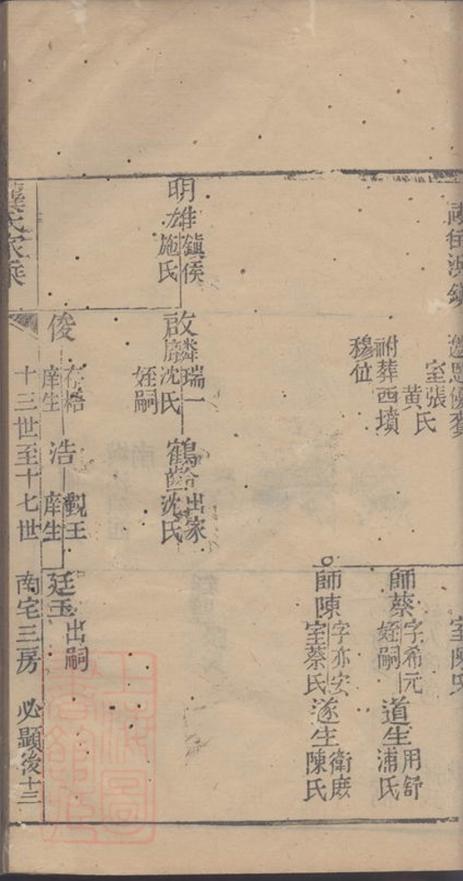 選恩優貢
室張
黃氏
祔葬西墳
穆位
師蔡
字希元
姪嗣
道生
用舒
浦氏
師陳
字亦安
室蔡氏
遂生
衛庭
陳氏
明雄
鎮侯
施氏
啟麟
瑞一
沈氏
姪嗣
鶴齡
出家
沈氏
俊
存梧
庠生
浩
觀王
庠生
廷玉
出嗣
龔氏家乘
十三世至十七世
南宅三房
必顯後十三